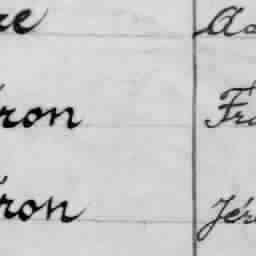 re Ad
ron Fra
ron Jér